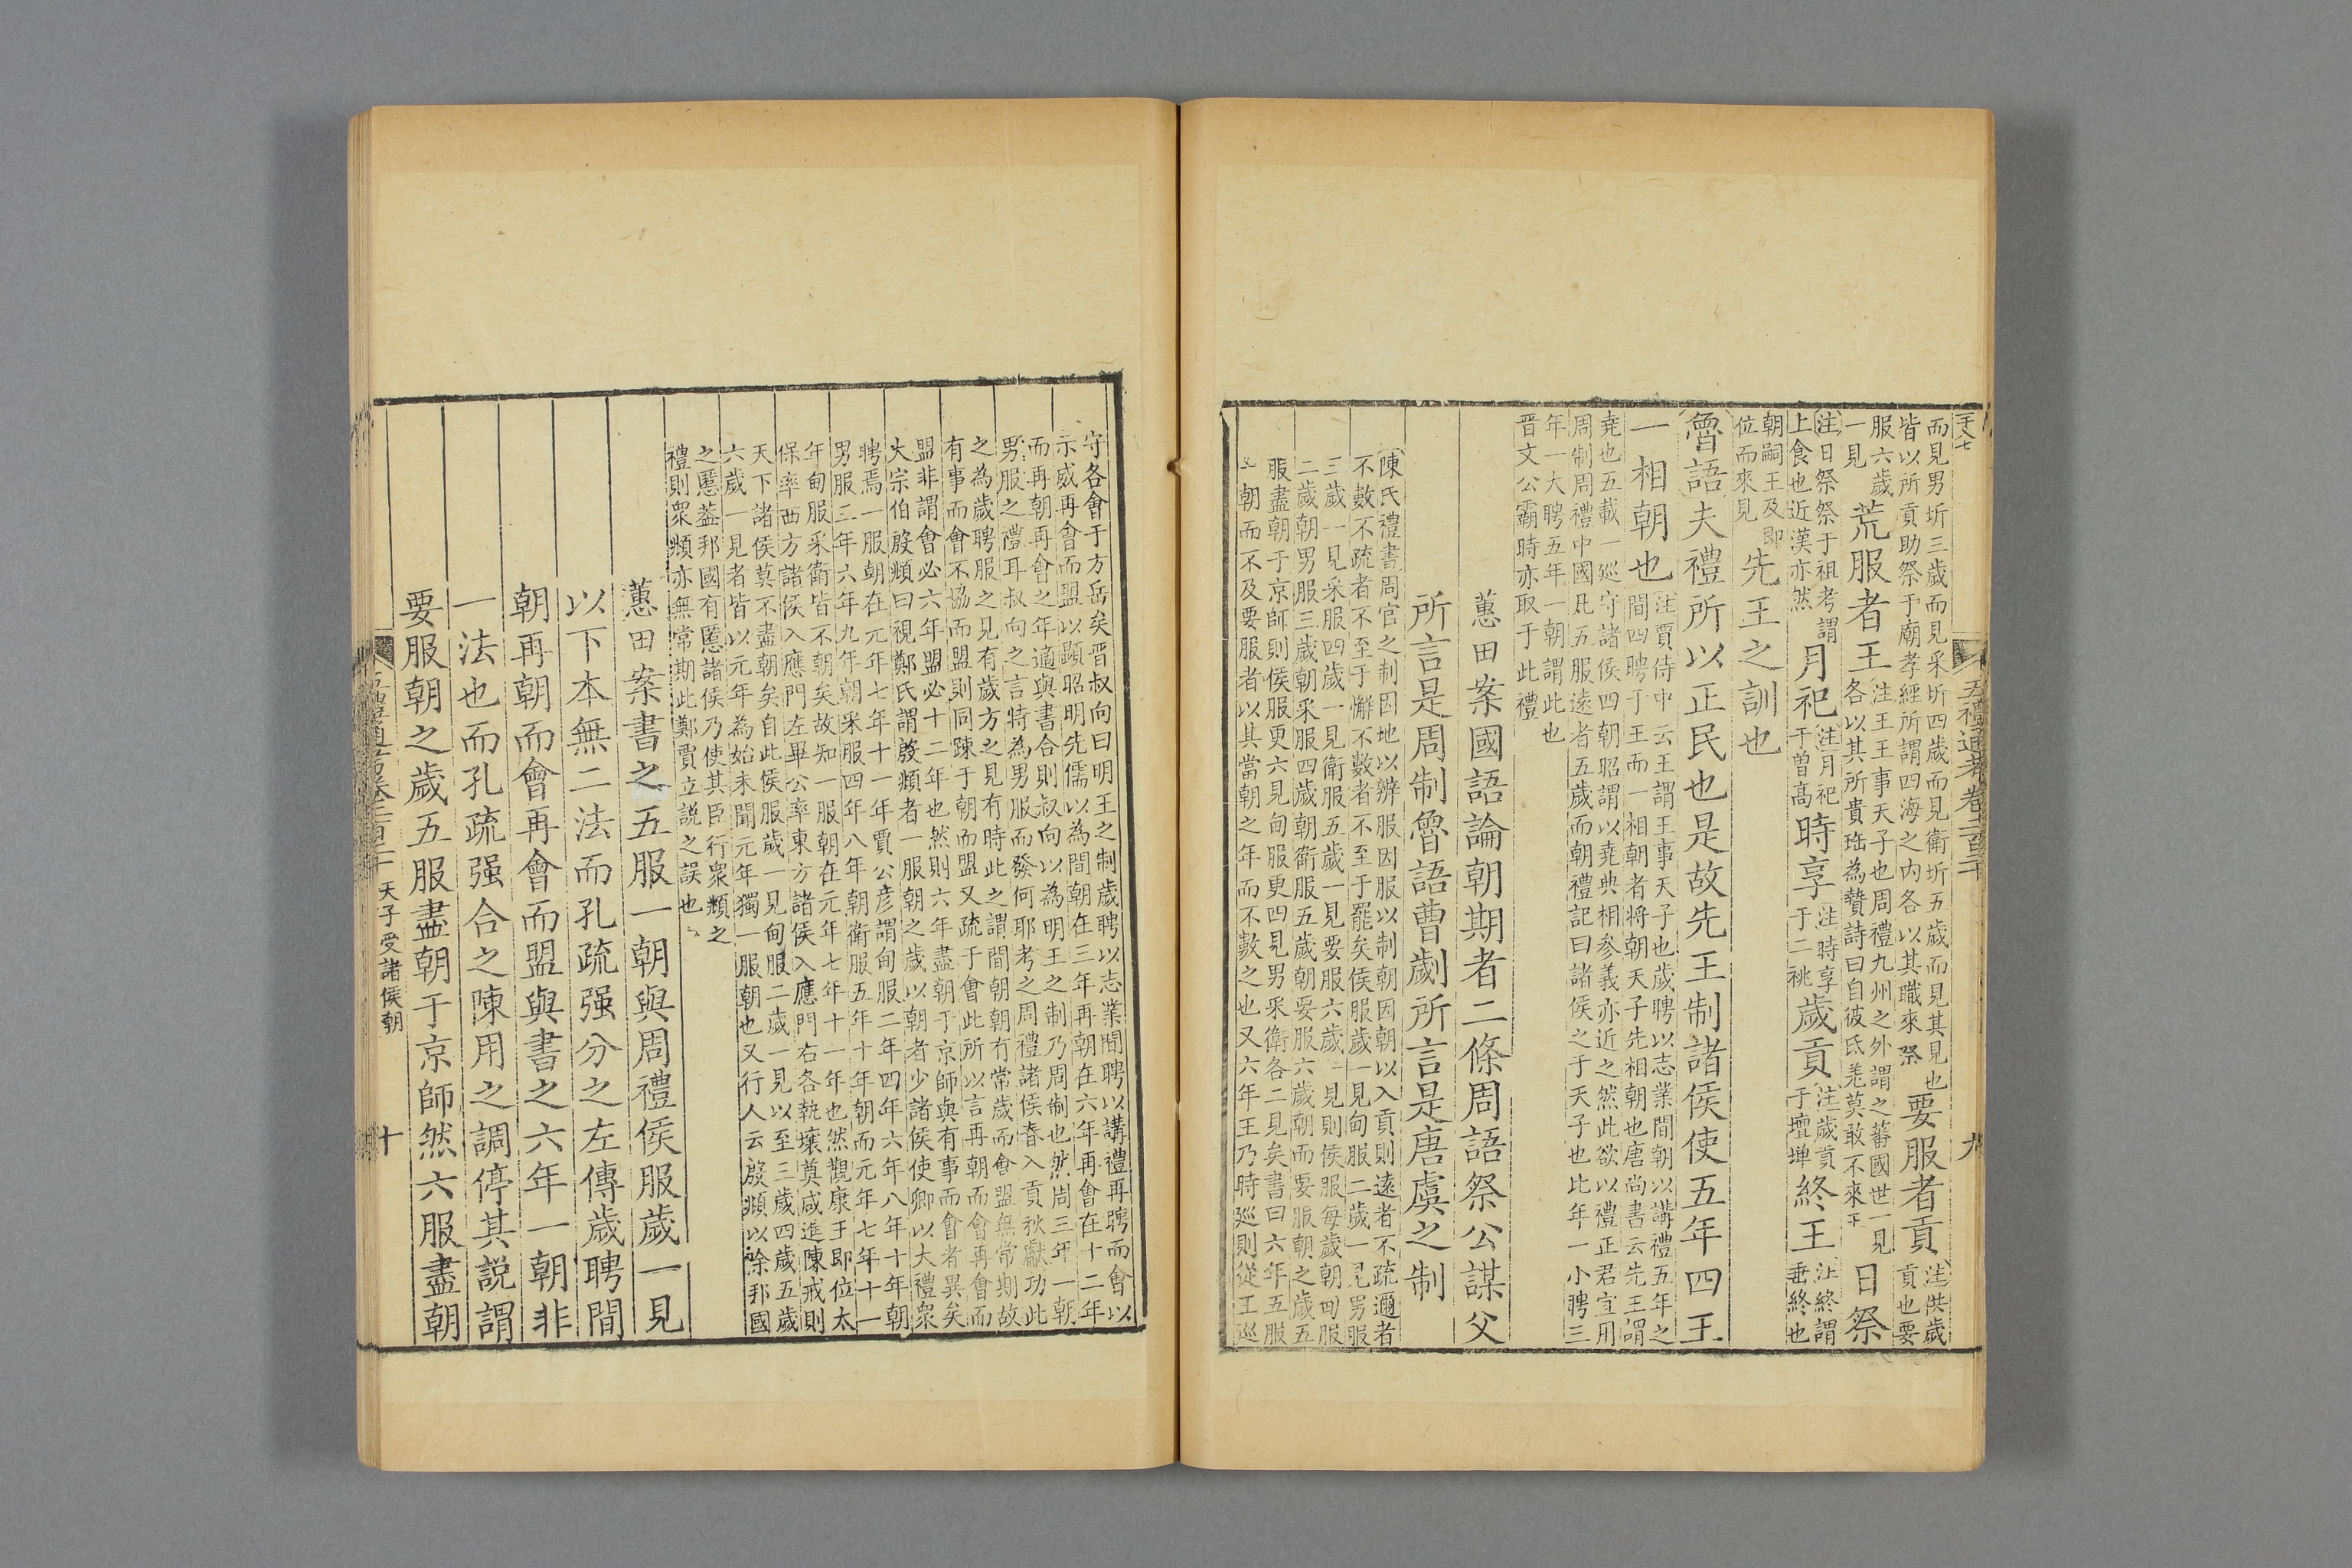 五禮通考卷二百二十
九
而見男圻三歲而見采圻四歲而見衛圻五歲而見其見也皆以所貢助祭于廟孝經所謂四海之內各以其職來祭要服者貢注供歲貢也要
服六歲一見荒服者王注王王事天子也周禮九州之外謂之蕃國世一見各以其所貴珤為贄詩曰自彼氐羌莫敢不來王日祭
注日祭祭于祖考謂上食也近漢亦然月祀注月祀于曾高時享注時享于二祧歲貢注歲貢于壇墠終王注終謂垂終也
朝嗣王及即位而來見先王之訓也
魯語夫禮所以正民也是故先王制諸侯使五年四王
一相朝也注賈侍中云王謂王事天子也歲聘以志業間朝以講禮五年之間四聘于王而一相朝者將朝天子先相朝也唐尚書云先王謂
堯也五載一巡守諸侯四朝昭謂以堯典相參義亦近之然此欲以禮正君宜用周制周禮中國凡五服遠者五歲而朝禮記曰諸侯之于天子也比年一小聘三
年一大聘五年一朝謂此也晉文公霸時亦取于此禮
蕙田案國語論朝期者二條周語祭公謀父
所言是周制魯語曹劌所言是唐虞之制
陳氏禮書周官之制因地以辨服因服以制朝因朝以入貢則遠者不疏邇者
不數不疏者不至于懈不數者不至于罷矣侯服歲一見甸服二歲一見男服
三歲一見采服四歲一見衛服五歲一見要服六歲一見則侯服每歲朝甸服
二歲朝男服三歲朝采服四歲朝衛服五歲朝要服六歲朝而要服朝之歲五
服盡朝于京師則侯服更六見甸服更四見男采衛各二見矣書曰六年五服
一朝而不及要服者以其當朝之年而不數之也又六年王乃時巡則從王巡
守各會于方岳矣晋叔向曰明王之制歲聘以志業間聘以講禮再聘而會以
示威再會而盟以顯昭明先儒以為間朝在三年再朝在六年再會在十二年
而再朝再會之年適與書合則叔向以為明王之制乃周制也然周三年一朝
男服之禮耳叔向之言特為男服而發何耶考之周禮諸侯春入貢秋獻功此
之為歲聘服之見有歲方之見有時此之謂間朝朝有常歲而會盟無常期故
有事而會不協而盟則同疎于朝而盟又疏于會此所以言再朝而會再會而
盟非謂會必六年盟必十二年也然則六年盡朝于京師與有事而會者異矣
大宗伯殷頫曰視鄭氏謂殷頫者一服朝之歲以朝者少諸侯使卿以大禮衆
聘焉一服朝在元年七年十一年賈公彦謂甸服二年四年六年八年十年朝
男服三年六年九年朝采服四年八年朝衛服五年十年朝而元年七年十一
年甸服采衛皆不朝矣故知一服朝在元年七年十一年也然觀康王即位太
保率西方諸侯入應門左畢公率東方諸侯入應門右各執壤奠咸進陳戒則
天下諸侯莫不盡朝矣自此侯服歲一見甸服二歲一見以至三歲四歲五歲
六歲一見者皆以元年為始未聞元年獨一服朝也又行人云殷頫以除邦國
之慝葢邦國有慝諸侯乃使其臣行衆頫之
禮則衆頫亦無常期此鄭賈立説之誤也
蕙田案書之五服一朝與周禮侯服歲一見
以下本無二法而孔疏强分之左傳歲聘間
朝再朝而會再會而盟與書之六年一朝非
一法也而孔疏强合之陳用之調停其説謂
要服朝之歲五服盡朝于京師然六服盡朝
天子受諸侯朝
十